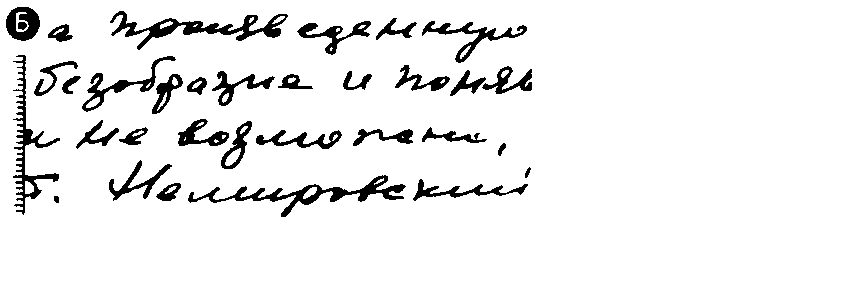 Б а произведенную
безобразие и поняв
и не возможно,
т. Немировский